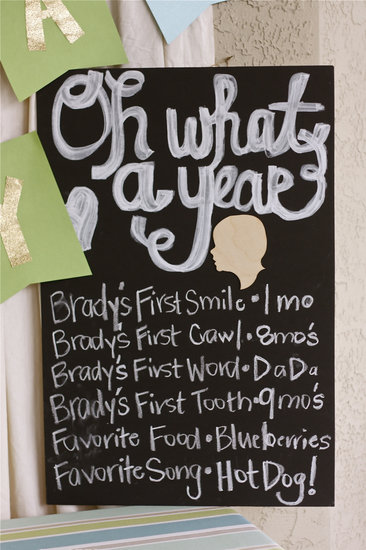 A
Y
Oh what
a year
Brady's First Smile • 1 mo
Brady's First Crawl • 8mo's
Brady's First Word • DaDa
Brady's First Tooth • 9mo's
Favorite Food • Blueberries
Favorite Song • Hot Dog!